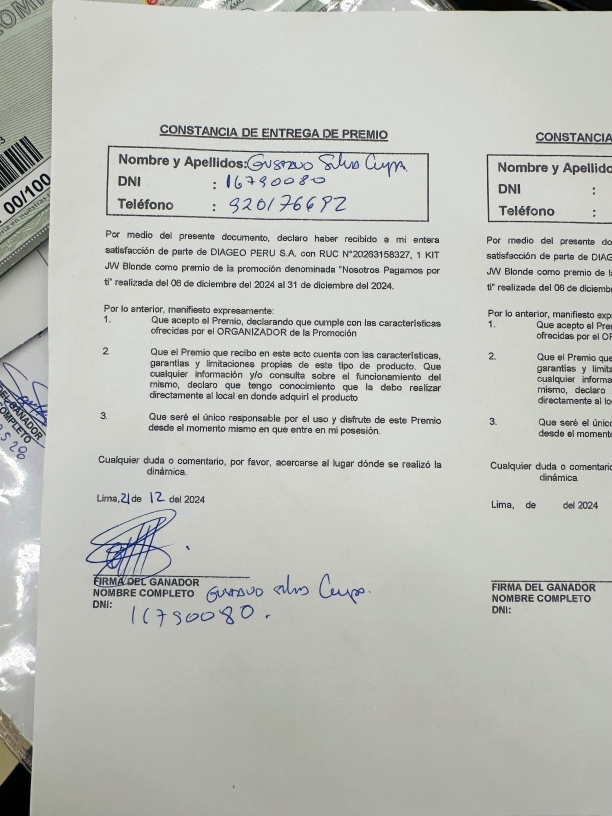 CONSTANCIA DE ENTREGA DE PREMIO
Nombre y Apellidos: Gustavo Silva
DNI : 16790080
Teléfono : 920176692
Por medio del presente documento, declaro haber recibido a mi entera
satisfacción de parte de DIAGEO PERU S.A. con RUC N°20263158327, 1 KIT
JW Blonde como premio de la promoción denominada "Nosotros Pagamos por
ti" realizada del 06 de diciembre del 2024 al 31 de diciembre del 2024.
Por lo anterior, manifiesto expresamente:
1. Que acepto el Premio, declarando que cumple con las características
ofrecidas por el ORGANIZADOR de la Promoción
2. Que el Premio que recibo en este acto cuenta con las características,
garantías y limitaciones propias de este tipo de producto. Que
cualquier información y/o consulta sobre el funcionamiento del
mismo, declaro que tengo conocimiento que la debo realizar
directamente al local en donde adquirí el producto
3. Que seré el único responsable por el uso y disfrute de este Premio
desde el momento mismo en que entre en mi posesión.
Cualquier duda o comentario, por favor, acercarse al lugar dónde se realizó la
dinámica.
Lima, 21 de 12 del 2024
FIRMA DEL GANADOR
NOMBRE COMPLETO Gustavo Silva
DNI: 16790080.
CONSTANCIA
Nombre y Apellido
DNI :
Teléfono :
Por medio del presente do
satisfacción de parte de DIAG
JW Blonde como premio de la
ti" realizada del 06 de diciemb
Por lo anterior, manifiesto exp
1. Que acepto el Pre
ofrecidas por el OR
2. Que el Premio que
garantías y limita
cualquier informa
mismo, declaro
directamente al loc
3. Que seré el únic
desde el moment
Cualquier duda o comentario
dinámica.
Lima, de del 2024
FIRMA DEL GANADOR
NOMBRE COMPLETO
DNI:
00/100
DEL GANADOR
COMPLETO